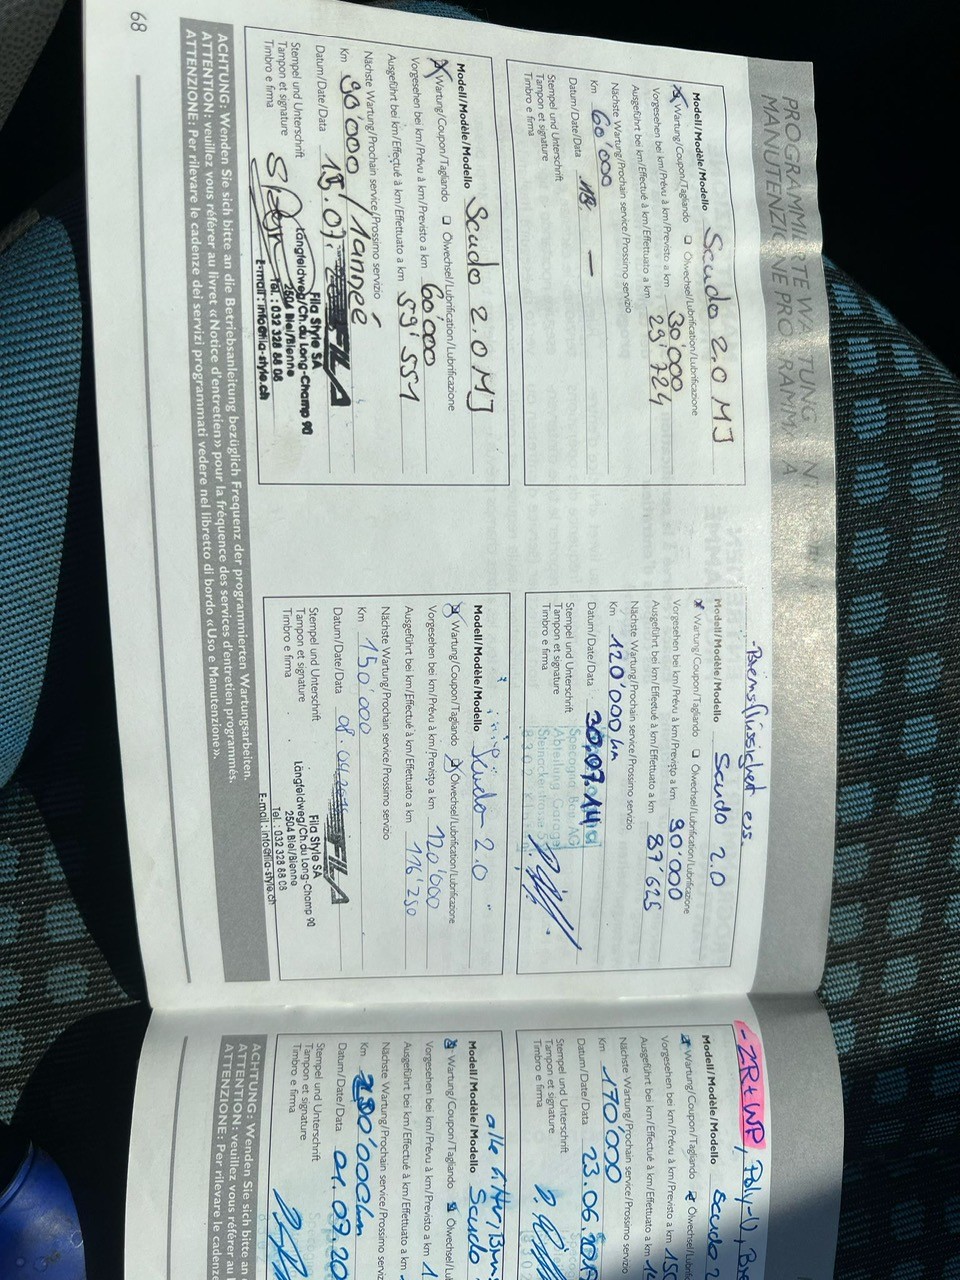 PROGRAMMIERTE WARTUNG
MANUTENZIONE PROGRAMMATA
Modell/Modèle/Modello Scudo 2.0 MJ
Wartung/Coupon/Tagliando Ölwechsel/Lubrification/Lubrificazione
Vorgesehen bei km/Prévu à km/Previsto a km 30'000
Ausgeführt bei km/Effectué à km/Effettuato a km 29'724
Nächste Wartung/Prochain service/Prossimo servizio
Km 60'000
Datum/Date/Data
Stempel und Unterschrift
Tampon et signature
Timbro e firma
Modell/Modèle/Modello Scudo 2.0 MJ
Wartung/Coupon/Tagliando Ölwechsel/Lubrification/Lubrificazione
Vorgesehen bei km/Prévu à km/Previsto a km 60'000
Ausgeführt bei km/Effectué à km/Effettuato a km 59'551
Nächste Wartung/Prochain service/Prossimo servizio
Km 90'000 / 1année
Datum/Date/Data
Stempel und Unterschrift
Tampon et signature
Timbro e firma
FILA
Fila Style SA
Längfeldweg/Ch.du Long-Champ 90
2504 Biel/Bienne
Tel. : 032 328 88 08
E-mail : info@fila-style.ch
- Bremsflüssigkeit ers.
Modell/Modèle/Modello Scudo 2.0
Wartung/Coupon/Tagliando Ölwechsel/Lubrification/Lubrificazione
Vorgesehen bei km/Prévu à km/Previsto a km 90'000
Ausgeführt bei km/Effectué à km/Effettuato a km 87'625
Nächste Wartung/Prochain service/Prossimo servizio
Km 120'000 km
Datum/Date/Data 30.07.14
Stempel und Unterschrift
Tampon et signature
Timbro e firma
Modell/Modèle/Modello Scudo 2.0
Wartung/Coupon/Tagliando Ölwechsel/Lubrification/Lubrificazione
Vorgesehen bei km/Prévu à km/Previsto a km 120'000
Ausgeführt bei km/Effectué à km/Effettuato a km 116'250
Nächste Wartung/Prochain service/Prossimo servizio
Km 150'000
Datum/Date/Data 08.04
Stempel und Unterschrift
Tampon et signature
Timbro e firma
FILA
Fila Style SA
Längfeldweg/Ch.du Long-Champ 90
2504 Biel/Bienne
Tel. : 032 328 88 08
E-mail : info@fila-style.ch
ACHTUNG: Wenden Sie sich bitte an die Betriebsanleitung bezüglich Frequenz der programmierten Wartungsarbeiten.
ATTENTION: veuillez vous référer au livret «Notice d'entretien» pour la fréquence des services d'entretien programmés.
ATTENZIONE: Per rilevare le cadenze dei servizi programmati vedere nel libretto di bordo «Uso e Manutenzione».
68
- ZR+WP, Poly-V,
Modell/Modèle/Modello Scudo 2
Wartung/Coupon/Tagliando Ölwechsel/Lub
Vorgesehen bei km/Prévu à km/Previsto a km 150
Ausgeführt bei km/Effectué à km/Effettuato a km
Nächste Wartung/Prochain service/Prossimo serviz
Km 170'000
Datum/Date/Data 23.06.
Stempel und Unterschrift
Tampon et signature
Timbro e firma
alle Filter/
Modell/Modèle/Modello Scudo
Wartung/Coupon/Tagliando Ölwechsel/Lu
Vorgesehen bei km/Prévu à km/Previsto a km
Ausgeführt bei km/Effectué à km/Effettuato a km
Nächste Wartung/Prochain service/Prossimo serviz
Km
Datum/Date/Data 01.09.20
Stempel und Unterschrift
Tampon et signature
Timbro e firma
ACHTUNG: Wenden Sie sich bitte an
ATTENTION: veuillez vous référer au
ATTENZIONE: Per rilevare le cadenze